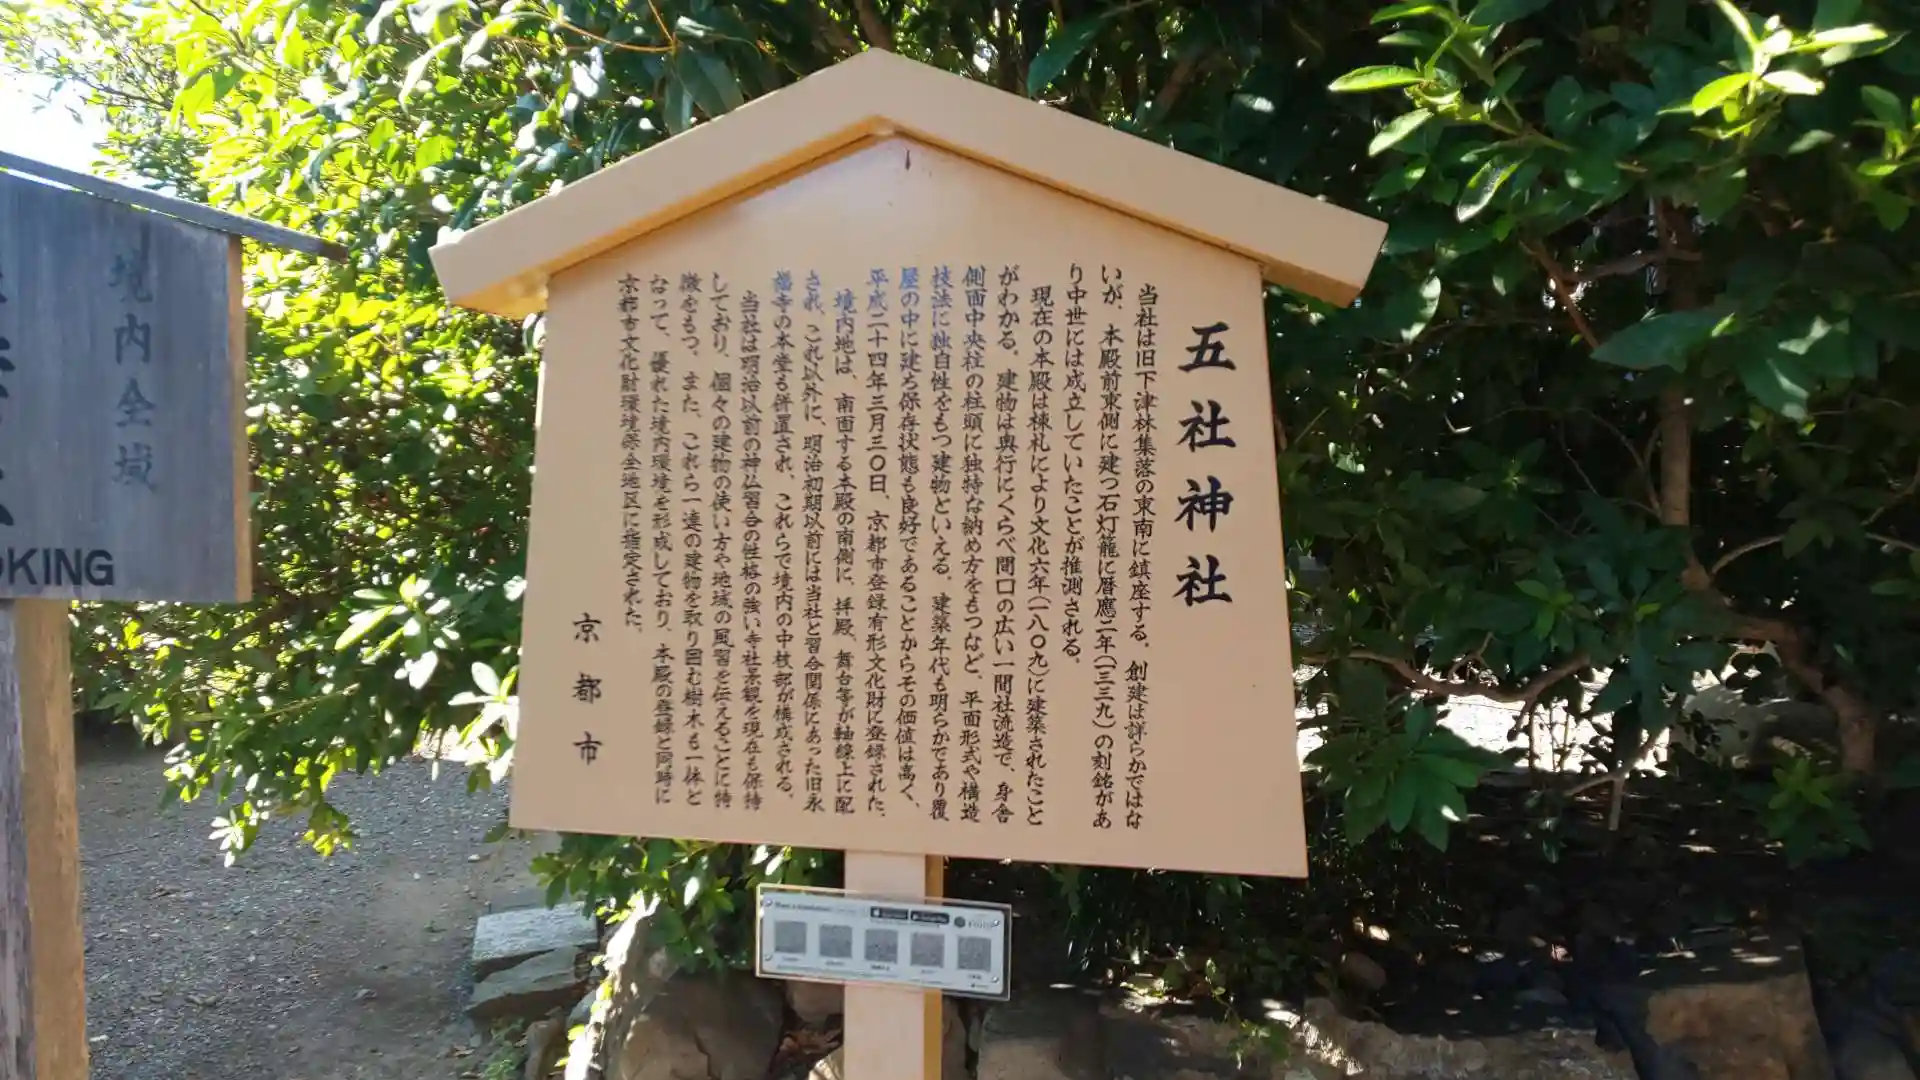 五社神社
当社は旧下津林集落の東南に鎮座する。創建は詳らかではな
いが、本殿前東側に建つ石灯籠に暦應二年(一三三九)の刻銘があ
り中世には成立していたことが推測される。
現在の本殿は棟札により文化六年(一八〇九)に建築されたこと
がわかる。建物は奥行にくらべ間口の広い一間社流造で、身舎
側面中央柱の柱頭に独特な納め方をもつなど、平面形式や構造
技法に独自性をもつ建物といえる。建築年代も明らかであり覆
屋の中に建ち保存状態も良好であることからその価値は高く、
平成二十四年三月三〇日、京都市登録有形文化財に登録された。
境内地は、南面する本殿の南側に、拝殿、舞台等が軸線上に配
され、これ以外に、明治初期以前には当社と習合関係にあった旧永
福寺の本堂も併置され、これらで境内の中枢部が構成される。
当社は明治以前の神仏習合の性格の強い寺社景観を現在も保持
しており、個々の建物の使い方や地域の風習を伝えることに特
徴をもつ。また、これら一連の建物を取り囲む樹木も一体と
なって、優れた境内環境を形成しており、本殿の登録と同時に
京都市文化財環境保全地区に指定された。
京都市
境内全域
KING